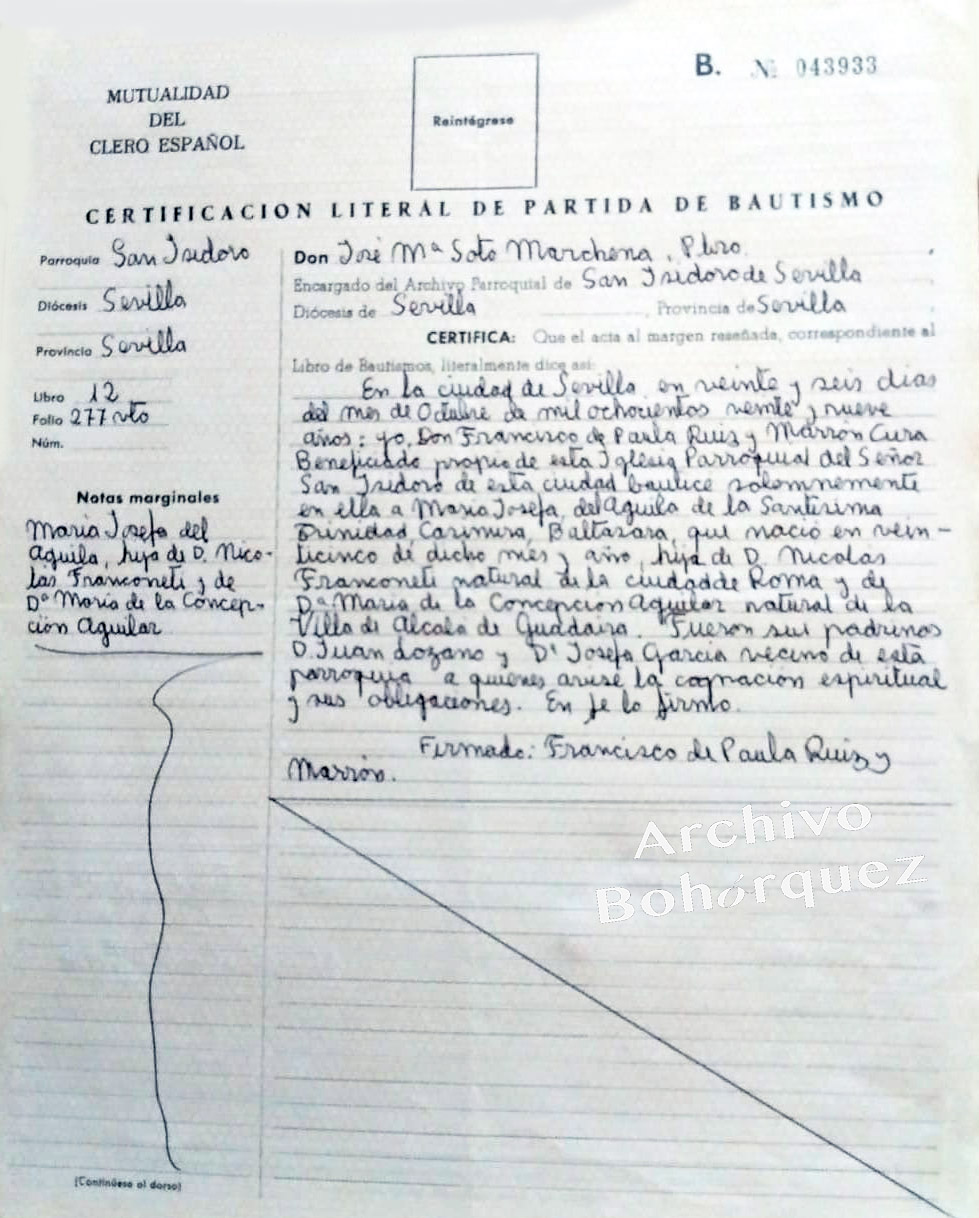 MUTUALIDAD
DEL
CLERO ESPAÑOL
Reintégrese
B. Nº 043933
CERTIFICACION LITERAL DE PARTIDA DE BAUTISMO
Parroquia San Isidoro
Diócesis Sevilla
Provincia Sevilla
Libro 12
Folio 277 vto
Núm.
Notas marginales
Maria Josefa del
Aguila, hija de D. Nico-
las Franconeti y de
Dª Maria de la Concep-
ción Aguilar
(Continúese al dorso)
Don José Mª Soto Marchena, Pbro.
Encargado del Archivo Parroquial de San Isidoro de Sevilla
Diócesis de Sevilla, Provincia de Sevilla
CERTIFICA: Que el acta al margen reseñada, correspondiente al
Libro de Bautismos, literalmente dice así:
En la ciudad de Sevilla, en veinte y seis dias
del mes de Octubre de mil ochocientos veinte y nueve
años: yo, Don Francisco de Paula Ruiz y Marrón Cura
Beneficiado propio de esta Iglesia Parroquial del Señor
San Isidoro de esta ciudad bauticé solemnemente
en ella a Maria Josefa, del Aguila de la Santisima
Trinidad Casimira, Baltasara, que nació en vein-
ticinco de dicho mes y año, hija de D. Nicolás
Franconeti natural de la ciudad de Roma y de
Dª Maria de la Concepcion Aguilar natural de la
Villa de Alcalá de Guadaira. Fueron sus padrinos
D. Juan Lozano y Dª Josefa Garcia vecino de esta
parroquia a quienes avisé la cognación espiritual
y sus obligaciones. En fe lo firmo.
Firmado: Francisco de Paula Ruiz y
Marrón.
Archivo
Bohórquez